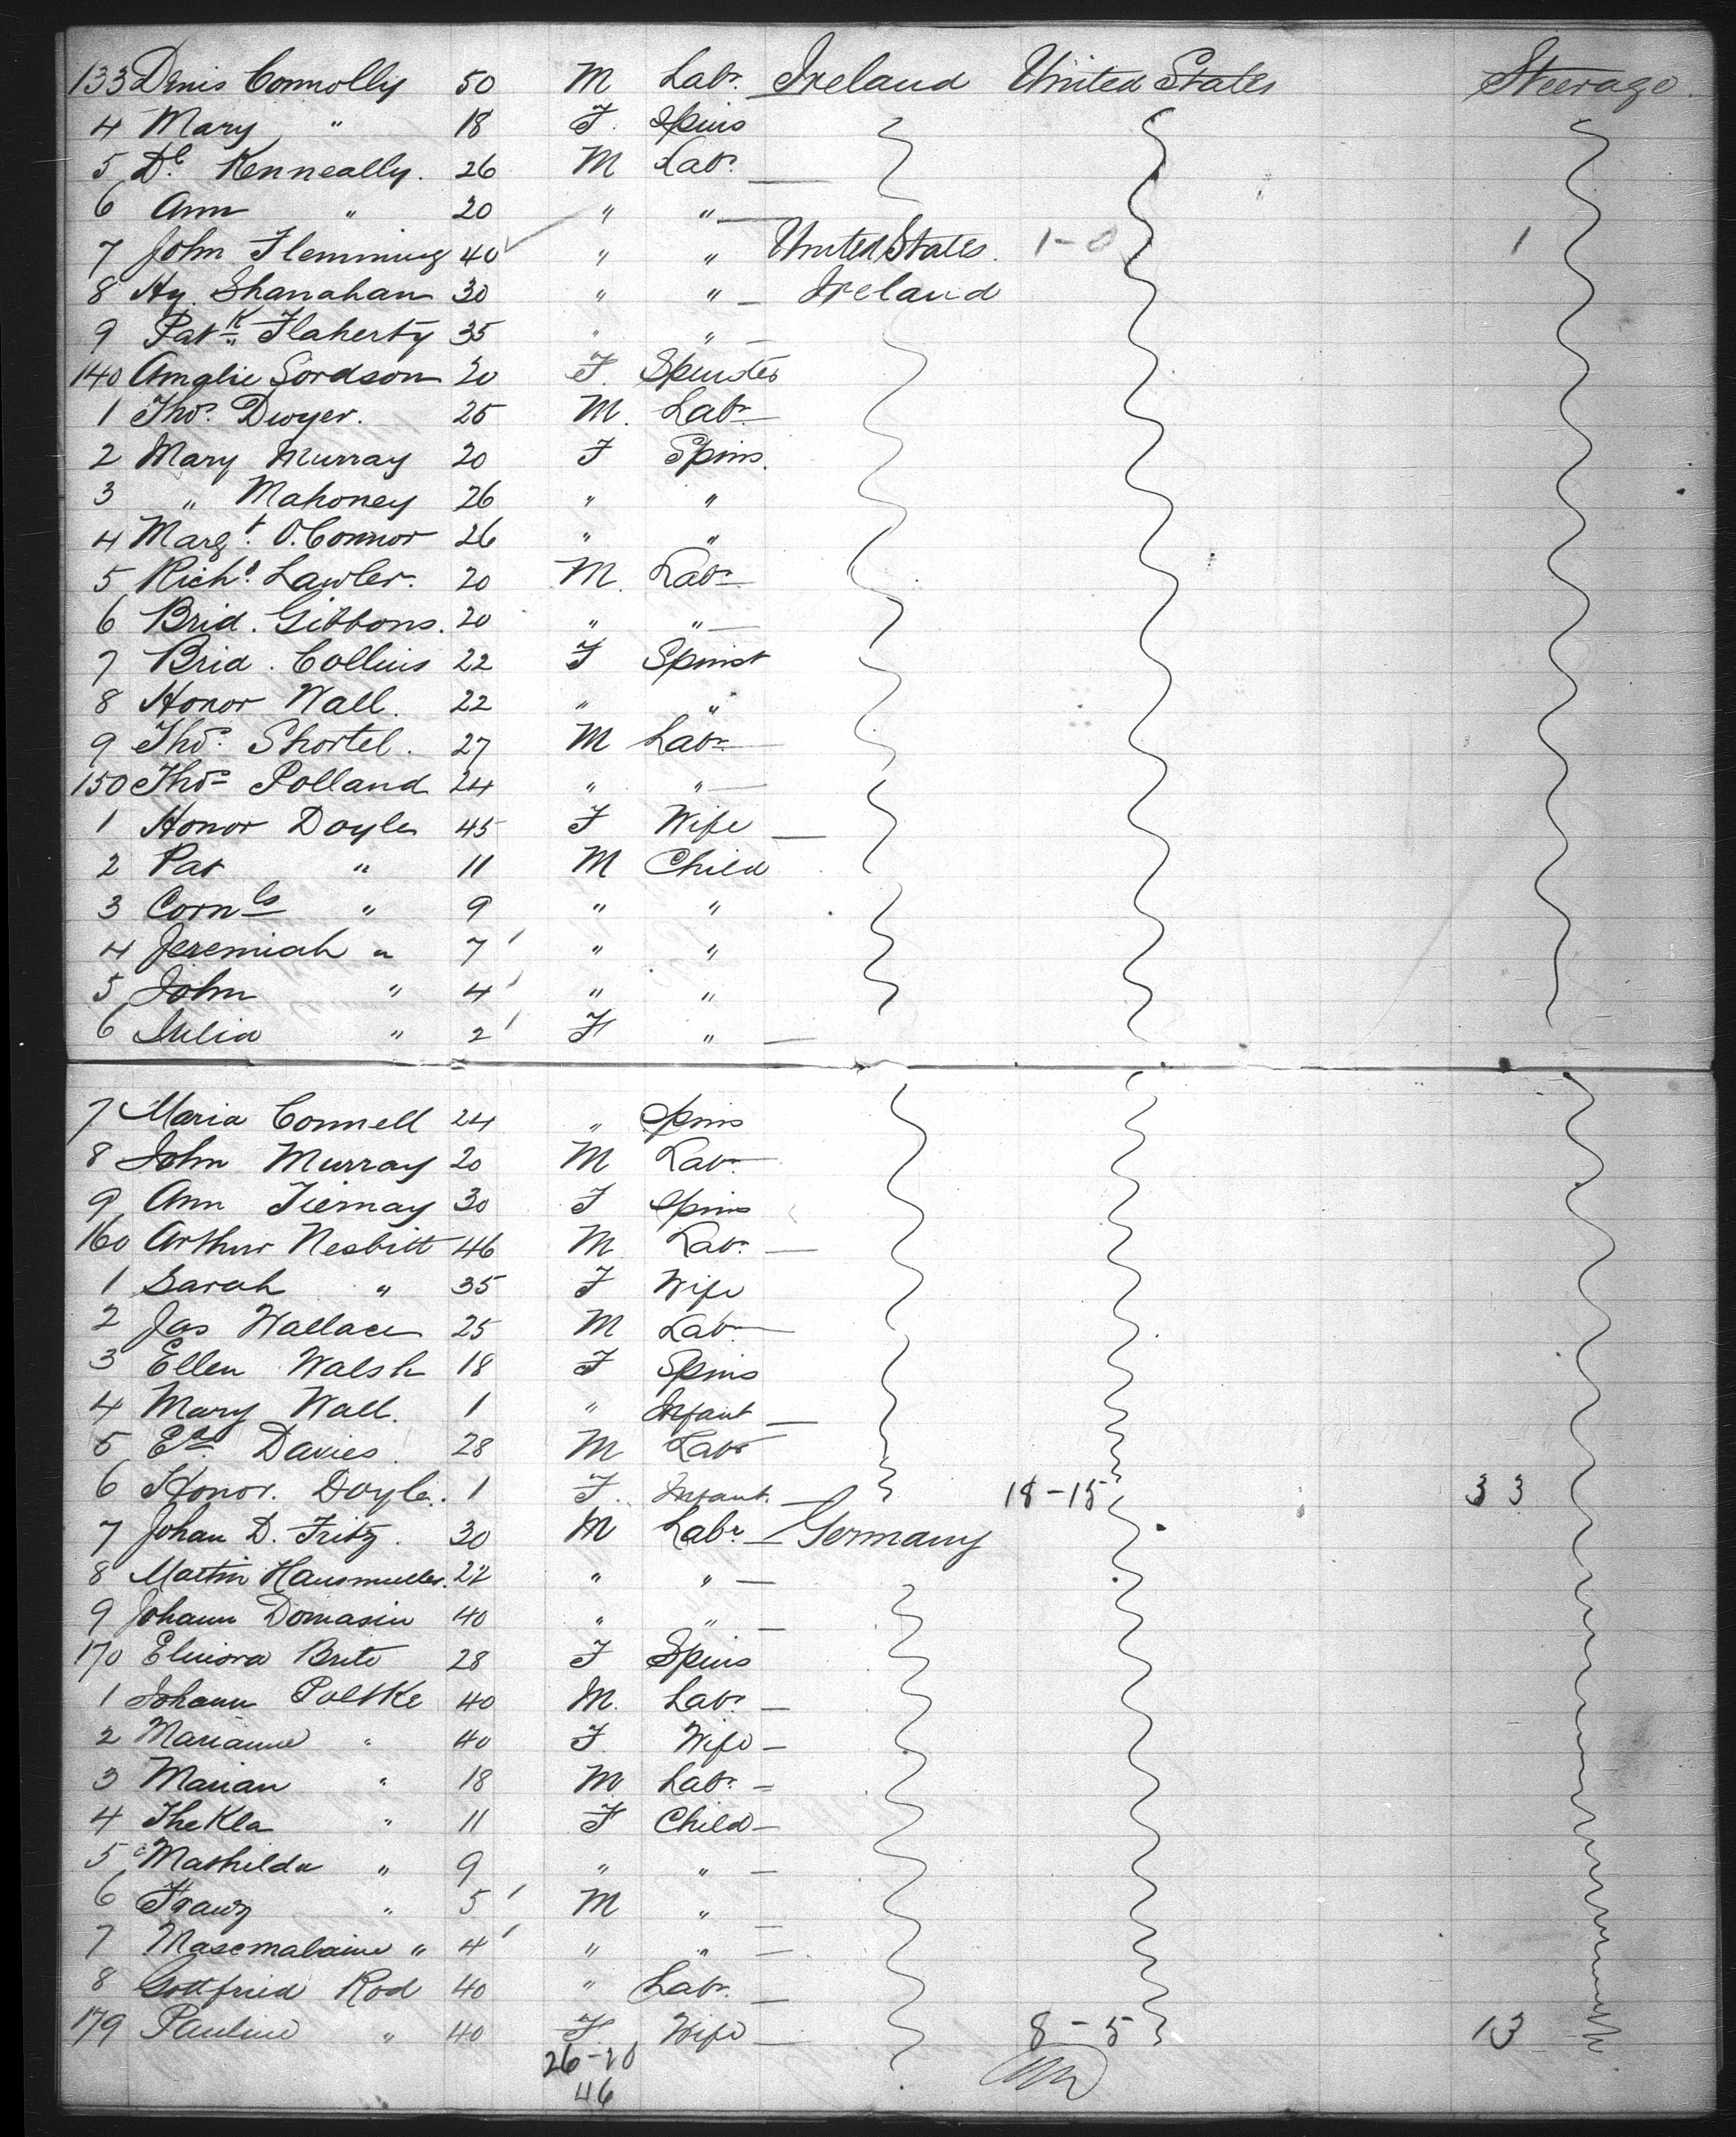 133 Denis Connolly 50 M Labr. Ireland United States Steerage
4 Mary " 18 F. Spins
5 Dl. Kenneally. 26 M Labr.
6 Ann " 20 " "
7 John Flemming 40 " " United States. 1-0 1
8 Hy. Shanahan 30 " " Ireland
9 Patk. Flaherty 35 " "
140 Amalie Sordson 20 F. Spinster
1 Thos. Dwyer. 25 M. Labr
2 Mary Murray 20 F Spins.
3 " Mahoney 26 " "
4 Margt. O.Connor 26 " "
5 Richd. Lawler. 20 M. Labr
6 Brid. Gibbons. 20 " "
7 Brid. Collins 22 F Spinst
8 Honor Wall. 22 " "
9 Thos. Shortel. 27 M Labr
150 Thos Polland 24 " "
1 Honor Doyle 45 F Wife
2 Pat " 11 M Child
3 Cornls " 9 " "
4 Jeremiah " 7 " "
5 John " 4 " "
6 Julia " 2 F "
7 Maria Connell 24 " Spins
8 John Murray 20 M Labr.
9 Ann Tiernay 30 F Spins
160 Arthur Nesbitt 46 M Labr.
1 Sarah " 35 F Wife
2 Jas Wallace 25 M Labr
3 Ellen Walsh 18 F Spins
4 Mary Wall. 1 " Infant
5 Davies. 28 M Labr
6 Honor. Doyle. 1 F. Infant. 18-15 33
7 Johan D. Fritz. 30 M Labr Germany
8 Martin Hausmuller. 22 " "
9 Johann Domasin 40 " "
170 Elinora Brite 28 F Spins
1 Johann Poltke 40 M. Labr.
2 Marianne " 40 F. Wife
3 Marian " 18 M Labr.
4 Thekla " 11 F Child
5 Mathilda " 9 " "
6 Franz " 5 M "
7 " 4 " "
8 Gottfried Rod 40 " Labr.
179 Pauline " 40 F. Wife 8-5 13
26-20
46